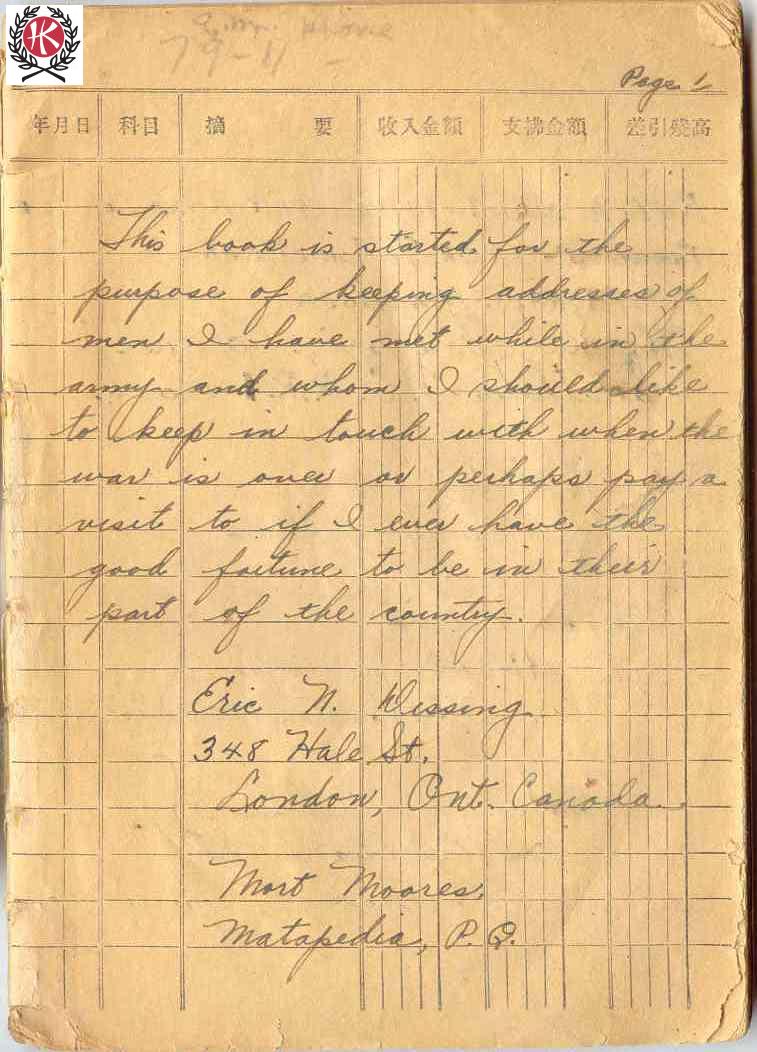 HK
Phone
79-11 -
Page 1
年月日 科目 摘 要 收入金額 支拂金額 差引殘高
This book is started for the
purpose of keeping addresses of
men I have met while in the
army and whom I should like
to keep in touch with when the
war is over or perhaps pay a
visit to if I ever have the
good fortune to be in their
part of the country.
Eric N.
348 Hale St.
London, Ont. Canada.
Mort Moores,
Matapedia, P.Q.